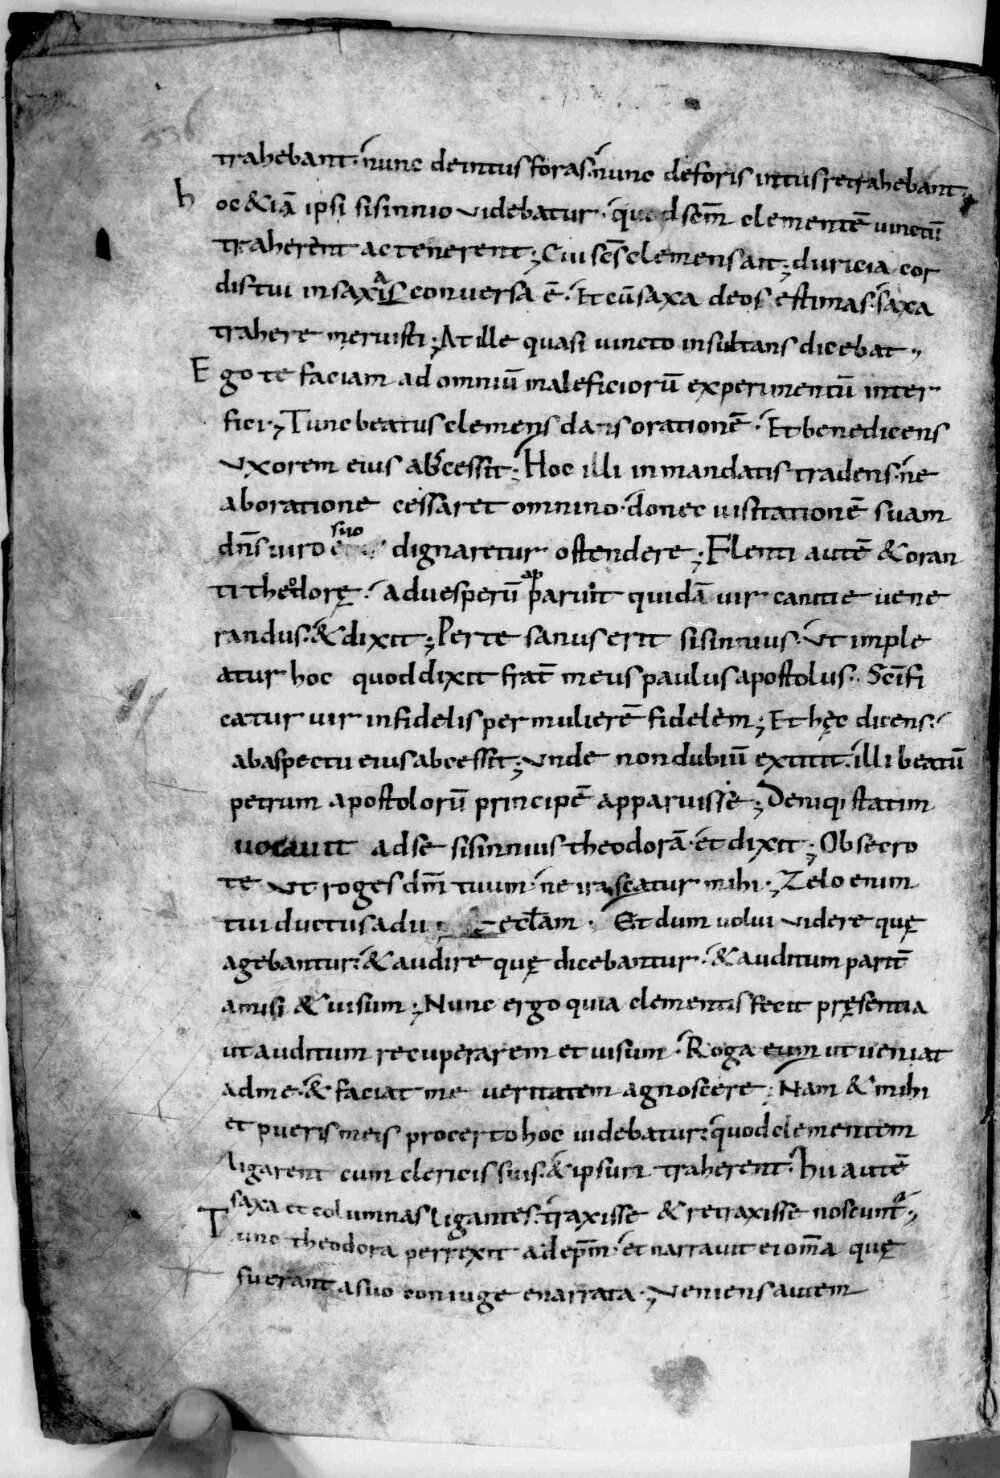 trahebant· nunc deintus foras· nunc deforis intus retrahebant·
hoc &iā ipsi sisinnio videbatur· quod scm̄ clementē vinctū
traherent ac tenerent; Cui scs̄ clemens ait; duricia cor
dis tui in saxa conversa ē· Et cū saxa deos estimas· saxa
trahere meruisti; At ille quasi vincto insultans dicebat;
Ego te faciam ad omniū maleficiorū experimentū inter
fici; Tunc beatus clemens dans orationē· Et benedicens
vxorem eius abscessit; Hoc illi in mandatis tradens· ne
ab oratione cessaret omnino· donec visitationē suam
dns̄ viro suo dignaretur ostendere; Flenti autē & oran
ti theodorę· ad vesperū apparuit quidā vir canitie vene
randus· & dixit; Per te sanus erit sisinnius· Vt imple
atur hoc quod dixit frat̄ meus paulus apostolus· Scīfi
catur vir infidelis per mulierē fidelem; Et hęc dicens·
ab aspectu eius abcessit; vnde non dubiū extitit· illi beatū
petrum apostolorū principē apparuisse; Deniq; statim
vocavit ad se sisinnius theodorā· et dixit; Obsecro
te vt roges dm̄ tuum· ne irascatur mihi; Zelo enim
tui ductus adu· eclam· Et dum volui videre quę
agebantur· & audire quę dicebantur· & auditum parit̄
amisi & visum; Nunc ergo quia clementis fecit pręsentia
ut auditum recuperarem et visum· Roga eum ut veniat
ad me· & faciat me veritatem agnoscere; Nam & mihi
et pueris meis pro certo hoc videbatur· quod clementem
ligarent cum clericis suis· & ipsum traherent· hii autē
saxa et columnas ligantes· traxisse & retraxisse noscunt̄;
Tunc theodora perrexit ad epm̄· et narravit ei om̄a quę
fuerant a suo coniuge enarrata; Veniens autem